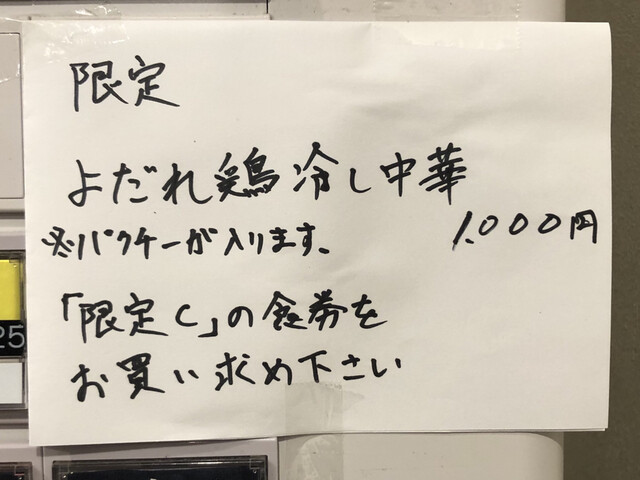 限定
よだれ鶏冷し中華
※パクチーが入ります。
1.000円
「限定C」の食券を
お買い求め下さい
25